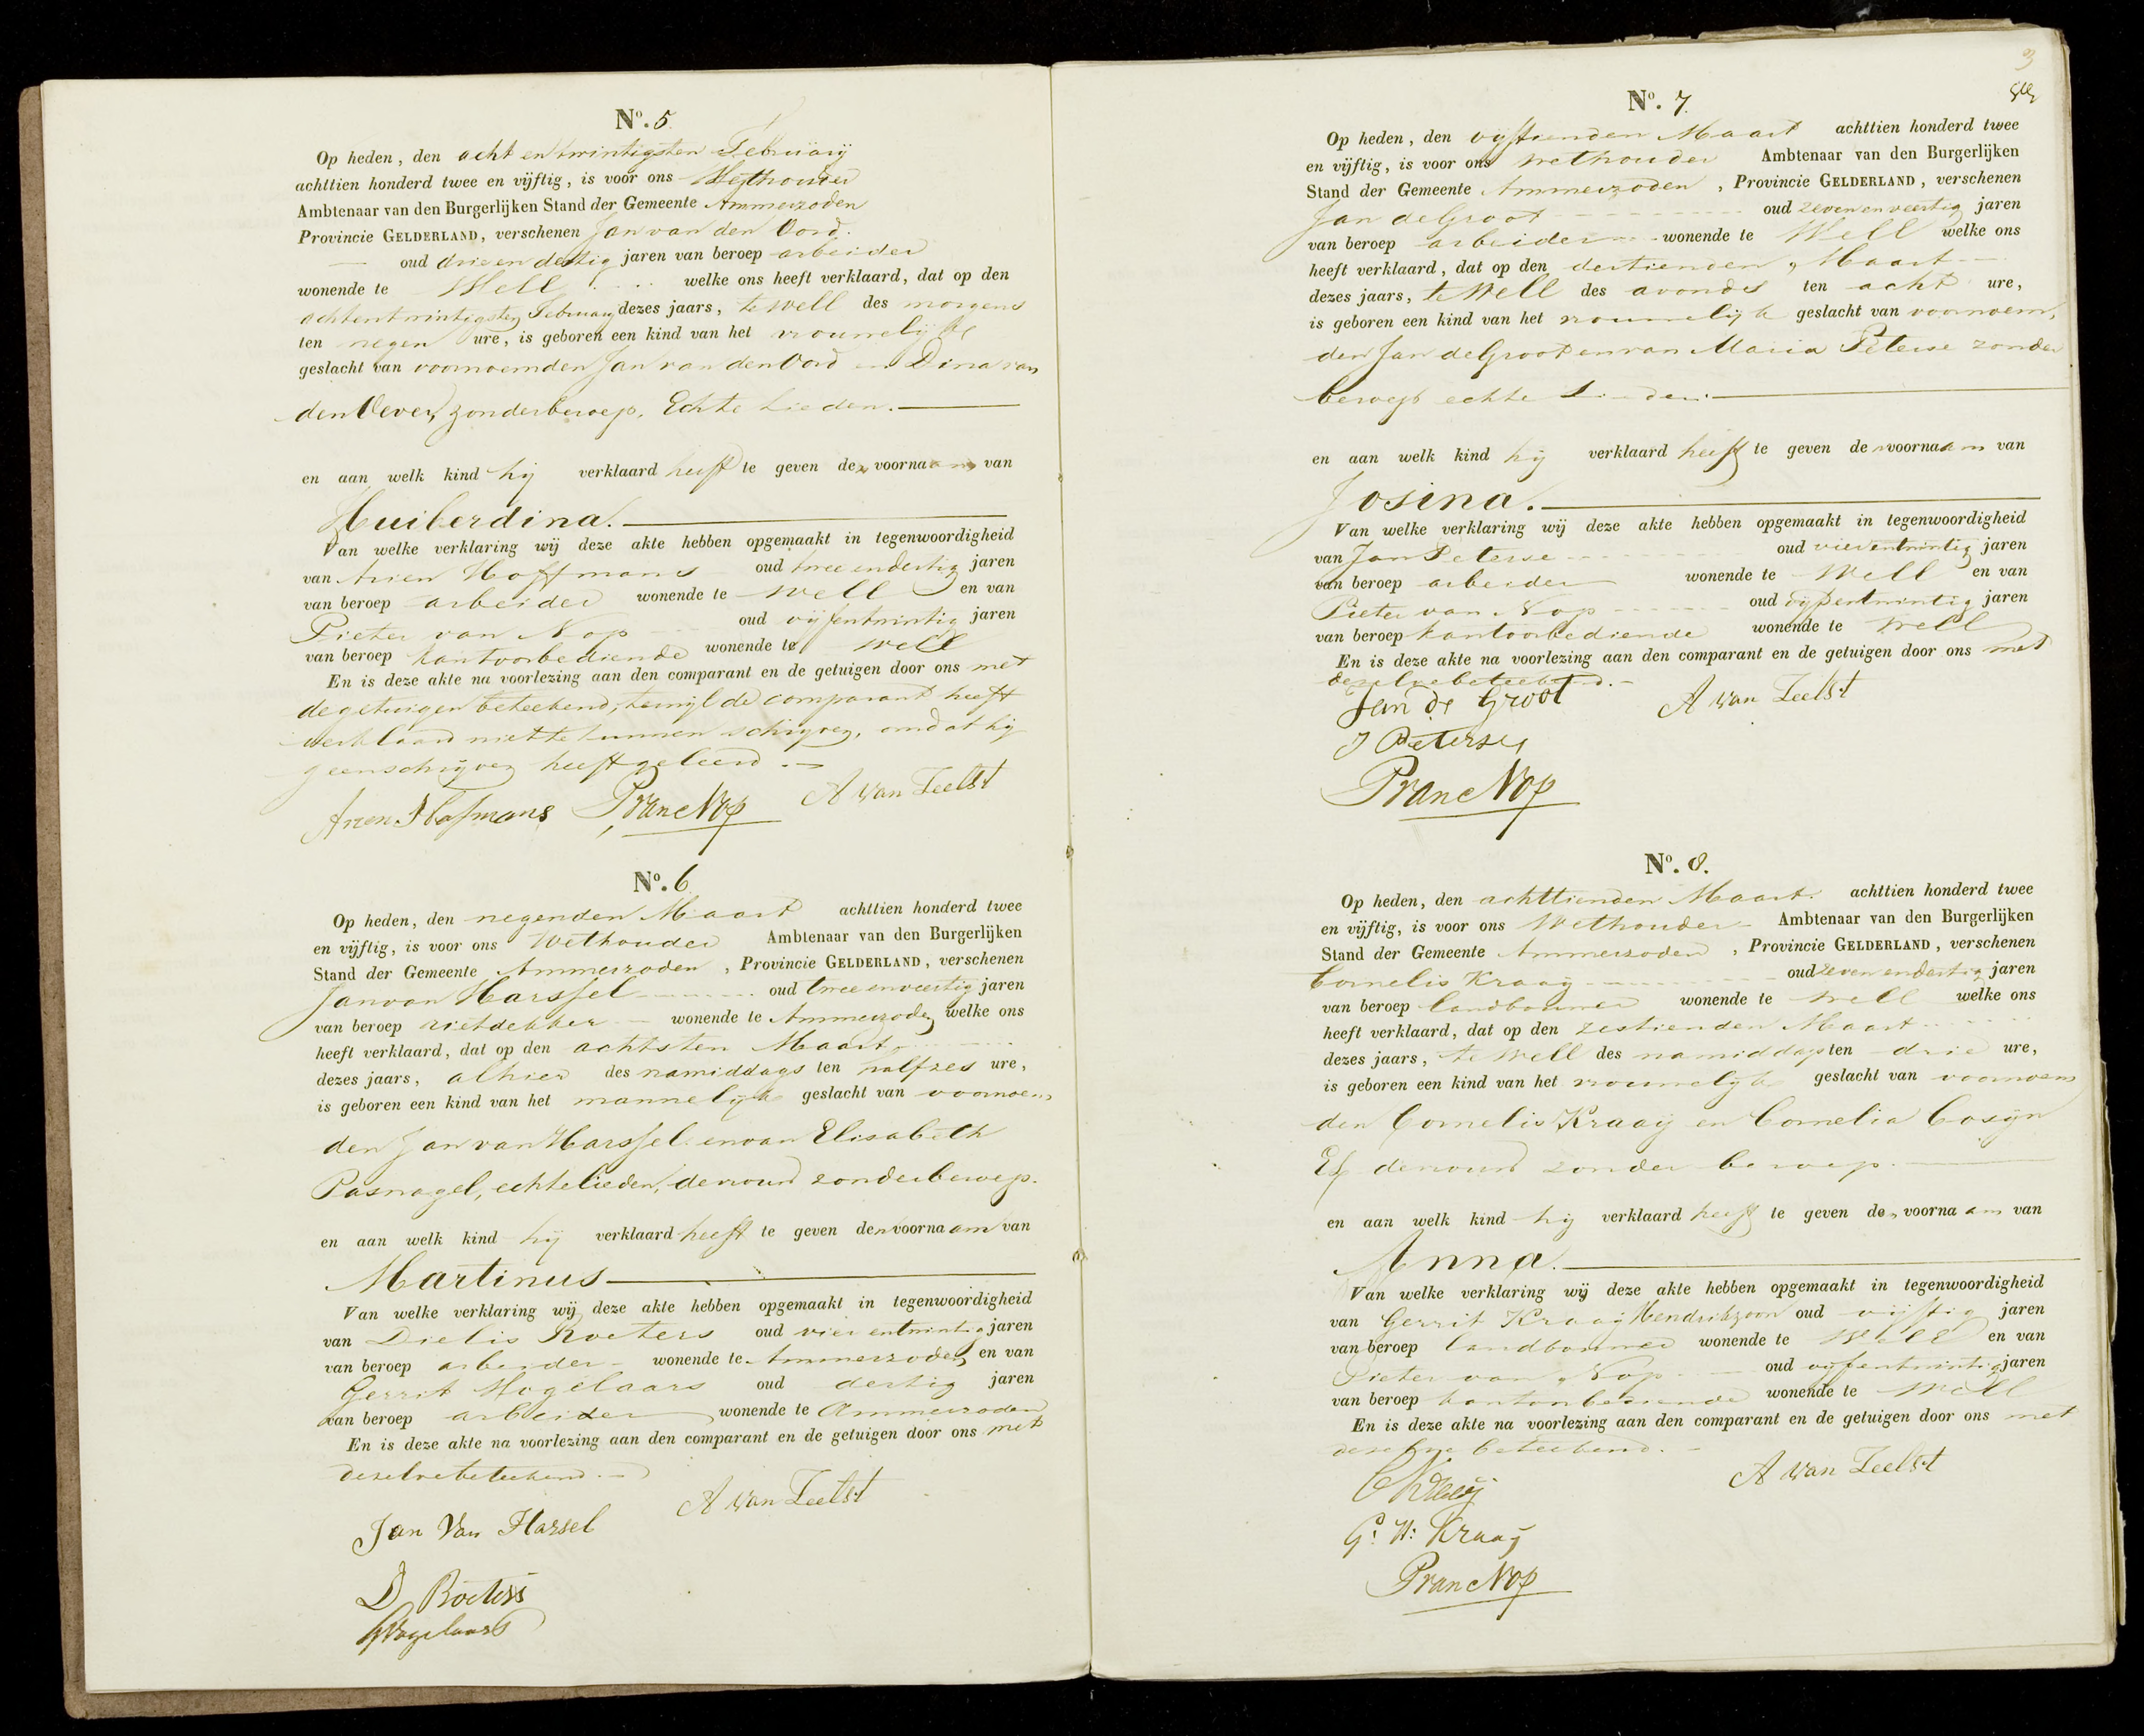 No. 5
Op heden, den acht en twintigsten Februarij
achttien honderd twee en vijftig, is voor ons Wethouder
Ambtenaar van den Burgerlijken Stand der Gemeente Ammerzoden
Provincie GELDERLAND, verschenen Jan van den Oord.
oud drie en dertig jaren van beroep arbeider
wonende te Well welke ons heeft verklaard, dat op den
achtentwintigsten Februarij dezes jaars, te Well des morgens
ten negen ure, is geboren een kind van het vrouwelijke
geslacht van voornoemden Jan van den Oord en Dina van
den Oever, zonder beroep, Echte Lieden.
en aan welk kind hij verklaard heeft te geven den voornaam van
Huiberdina.
Van welke verklaring wij deze akte hebben opgemaakt in tegenwoordigheid
van Arien Hoffmans oud twee en dertig jaren
van beroep arbeider wonende te Well en van
Pieter van Nop oud vijfentwintig jaren
van beroep kantoorbediende wonende te Well
En is deze akte na voorlezing aan den comparant en de getuigen door ons met
de getuigen beteekend, terwijl de comparant heeft
verklaard niet te kunnen schrijven, omdat hij
geen schrijven heeft geleerd.
Arien Hofmans P van Nop A van Zeelst
No. 6
Op heden, den negenden Maart achttien honderd twee
en vijftig, is voor ons Wethouder Ambtenaar van den Burgerlijken
Stand der Gemeente Ammerzoden, Provincie GELDERLAND, verschenen
Jan van Harssel oud twee en veertig jaren
van beroep rietdekker wonende te Ammerzoden welke ons
heeft verklaard, dat op den achtsten Maart
dezes jaars, alhier des namiddags ten halfzes ure,
is geboren een kind van het mannelijke geslacht van voornoem
den Jan van Harssel en van Elisabeth
Pasnagel, echtelieden, de vrouw zonder beroep.
en aan welk kind hij verklaard heeft te geven den voornaam van
Martinus
Van welke verklaring wij deze akte hebben opgemaakt in tegenwoordigheid
van Dielis Roeters oud vier entwintig jaren
van beroep arbeider wonende te Ammerzoden en van
Gerrit Vogelaars oud dertig jaren
van beroep arbeider wonende te Ammerzoden
En is deze akte na voorlezing aan den comparant en de getuigen door ons met
dezelve beteekend.
Jan Van Harsel A van Zeelst
D Roeters
G Vogelaars
3
No. 7.
Op heden, den vijftienden Maart achttien honderd twee
en vijftig, is voor ons Wethouder Ambtenaar van den Burgerlijken
Stand der Gemeente Ammerzoden, Provincie GELDERLAND, verschenen
Jan de Groot oud zeven en veertig jaren
van beroep arbeider wonende te Well welke ons
heeft verklaard, dat op den dertienden Maart
dezes jaars, te Well des avonds ten acht ure,
is geboren een kind van het vrouwelijk geslacht van voornoem,
den Jan de Groot en van Maria Peterse zonder
beroep echte Lieden.
en aan welk kind hij verklaard heeft te geven den voornaam van
Josina.
Van welke verklaring wij deze akte hebben opgemaakt in tegenwoordigheid
van Jan Peterse oud vierentwintig jaren
van beroep arbeider wonende te Well en van
Pieter van Nop oud vijfentwintig jaren
van beroep kantoorbediende wonende te Well
En is deze akte na voorlezing aan den comparant en de getuigen door ons met
dezelve beteekend.
Jan de Groot A van Zeelst
J Peterse
P van Nop
No. 8.
Op heden, den achttienden Maart. achttien honderd twee
en vijftig, is voor ons Wethouder Ambtenaar van den Burgerlijken
Stand der Gemeente Ammerzoden, Provincie GELDERLAND, verschenen
Cornelis Kraaij oud zeven en dertig jaren
van beroep landbouwer wonende te Well welke ons
heeft verklaard, dat op den zestienden Maart
dezes jaars, te Well des namiddags ten drie ure,
is geboren een kind van het vrouwelijke geslacht van voornoem
den Cornelis Kraaij en Cornelia Cosijn
El de vrouw zonder beroep.
en aan welk kind hij verklaard heeft te geven den voornaam van
Anna.
Van welke verklaring wij deze akte hebben opgemaakt in tegenwoordigheid
van Gerrit Kraaij Hendrikzoon oud vijftig jaren
van beroep landbouwer wonende te Well en van
Pieter van Nop oud vijfentwintig jaren
van beroep kantoorbediende wonende te Well
En is deze akte na voorlezing aan den comparant en de getuigen door ons met
dezelve beteekend.
C Kraaij A van Zeelst
G: H: Kraaij
P van Nop